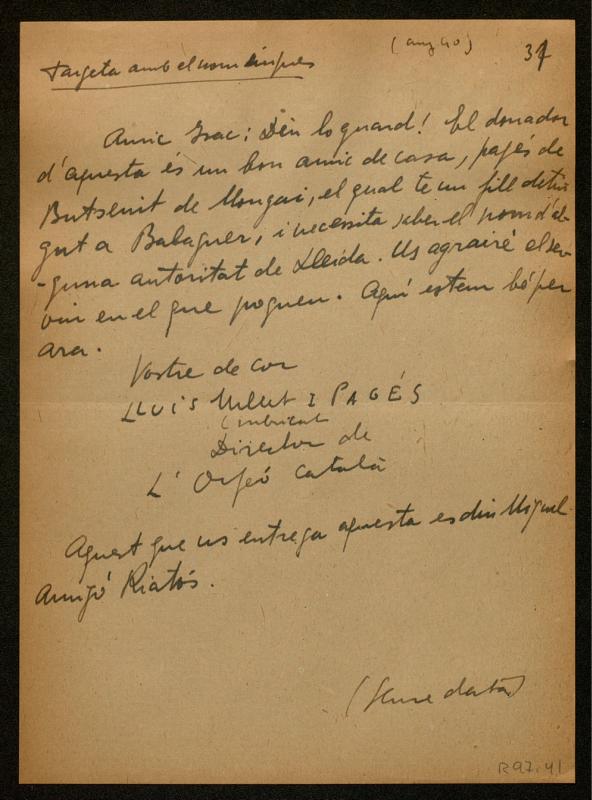 (any 40)
37
Targeta amb el nom imprès
Amic Grac: Déu lo guard! El donador
d'aquesta és un bon amic de casa, pagés de
Butsenit de Mongai, el qual te un fill detin
gut a Balaguer, i necessita saber el nom d'al-
-guna autoritat de Lleida. Us agrairé el ser-
vei en el que pogueu. Aquí estem bé per
ara.
Vostre de cor
LLUÍS Millet I PAGÉS
Director de
L'Orfeó Català
Aquest que us entrega aquesta es diu Miquel
Amigó Riatós.
(Sense data)
R97.41